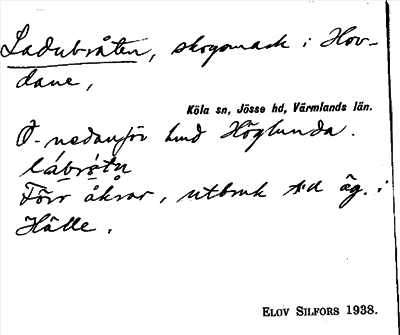 Ladubråten, skogsmark i Hov-
dane,
Köla sn, Jösse hd, Värmlands län.
Ö. nedanför Höglunda.
Förr åkrar, utbruk t.d äg. i
Hälle.
ELOV SILFORS 1938.